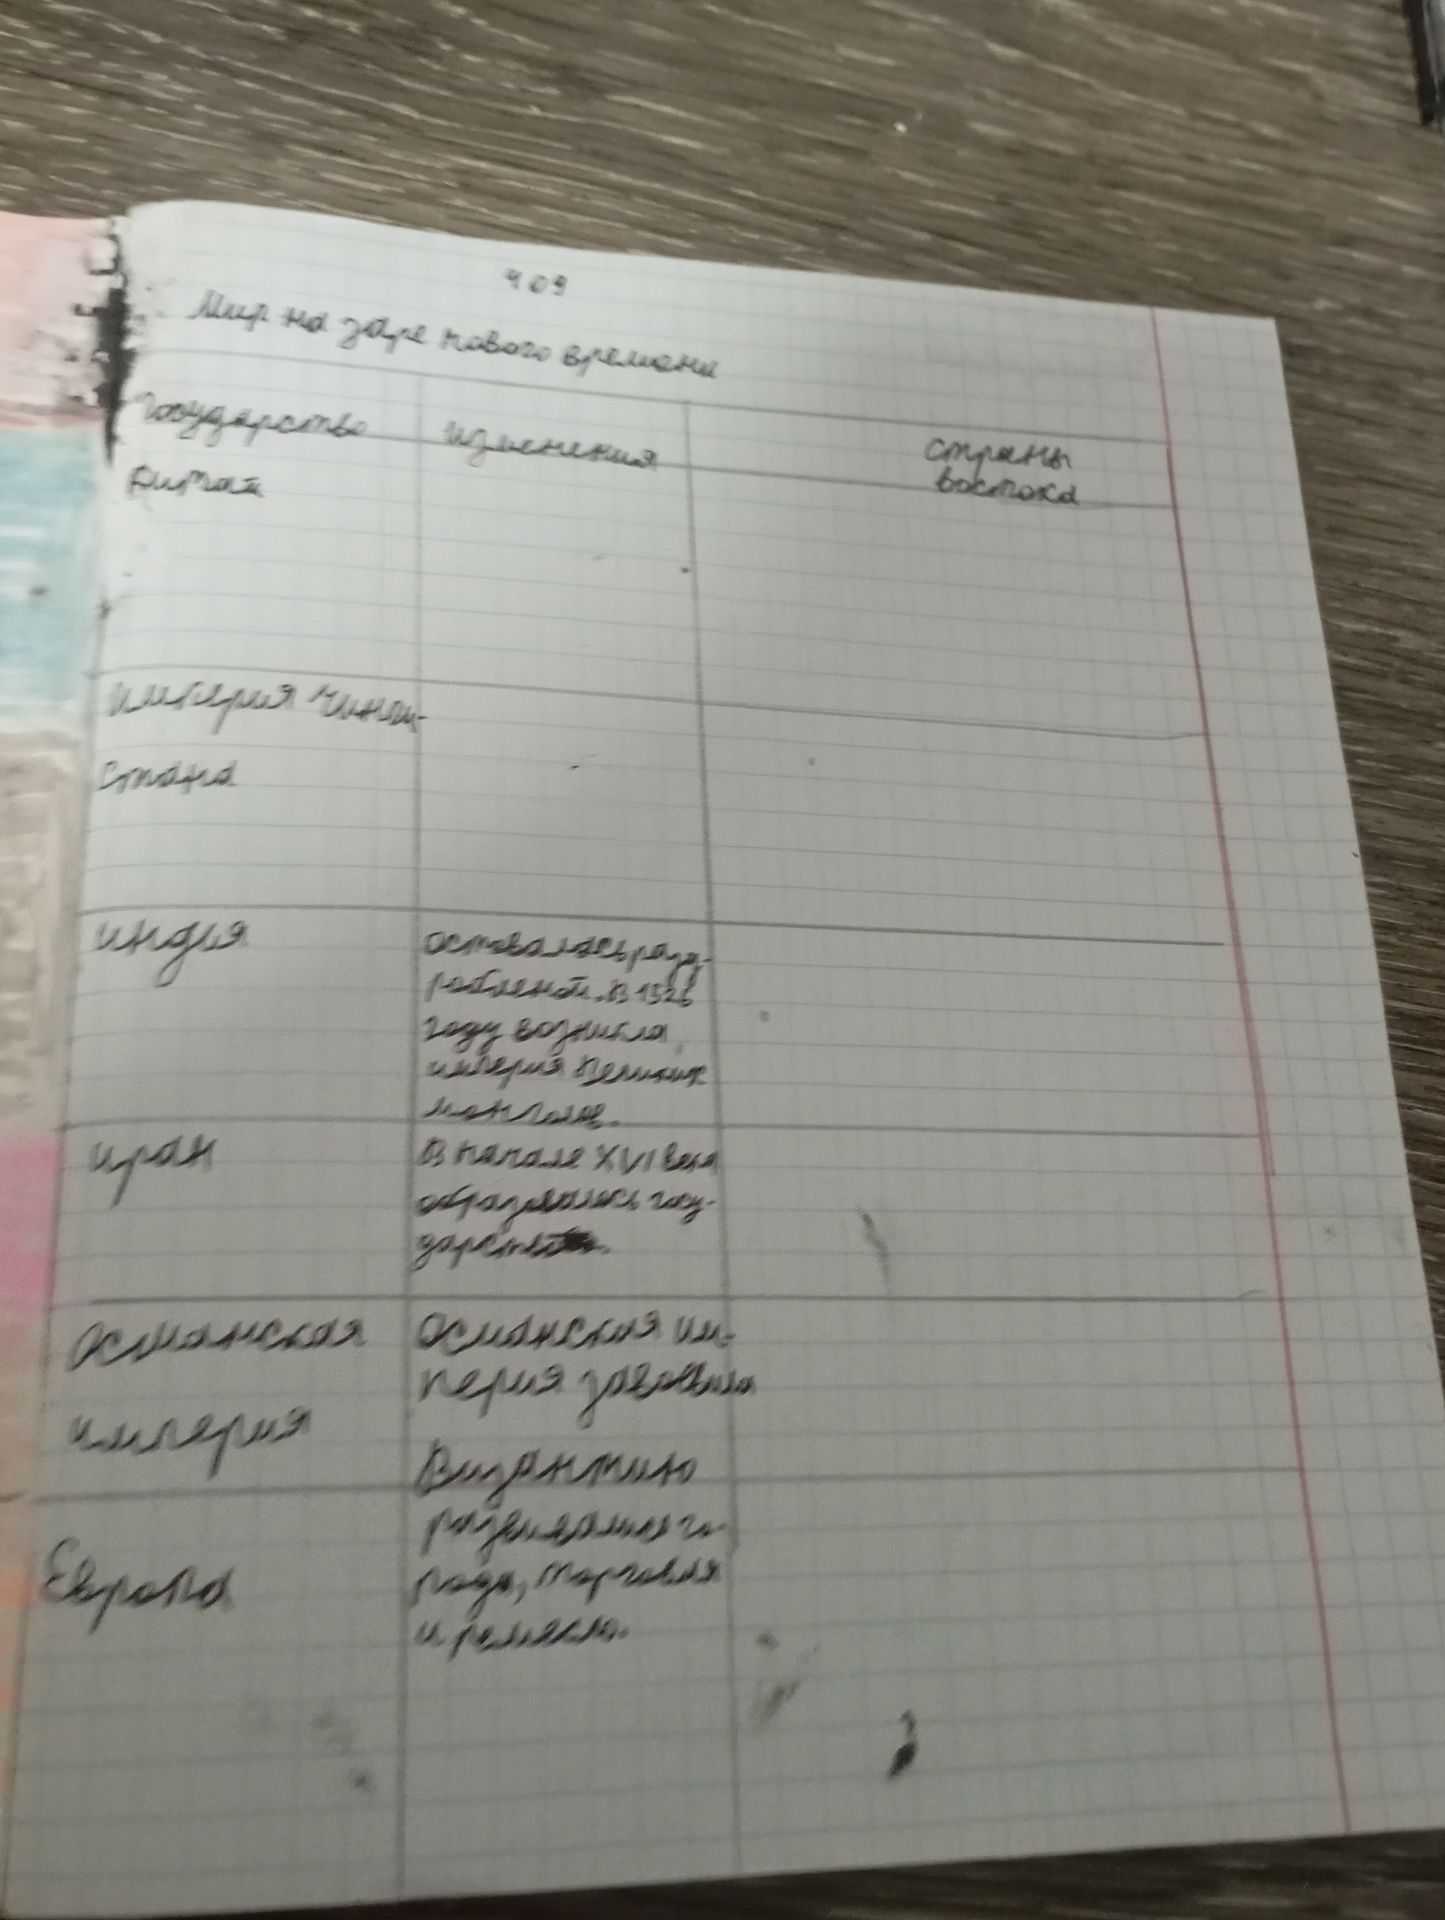 4 09
Мир на заре нового времени
государство
изменения
страны
востока
Китай
империя Чинги-
стана
индия
оставалась разд-
робленой. В 1526
году возникла
империя Великих
монголов.
иран
В начале XVI века
образовалось госу-
Османская
империя
Османская им-
перия завоевала
Византию
Европа
развивались го-
рода, торговля
и ремесло.